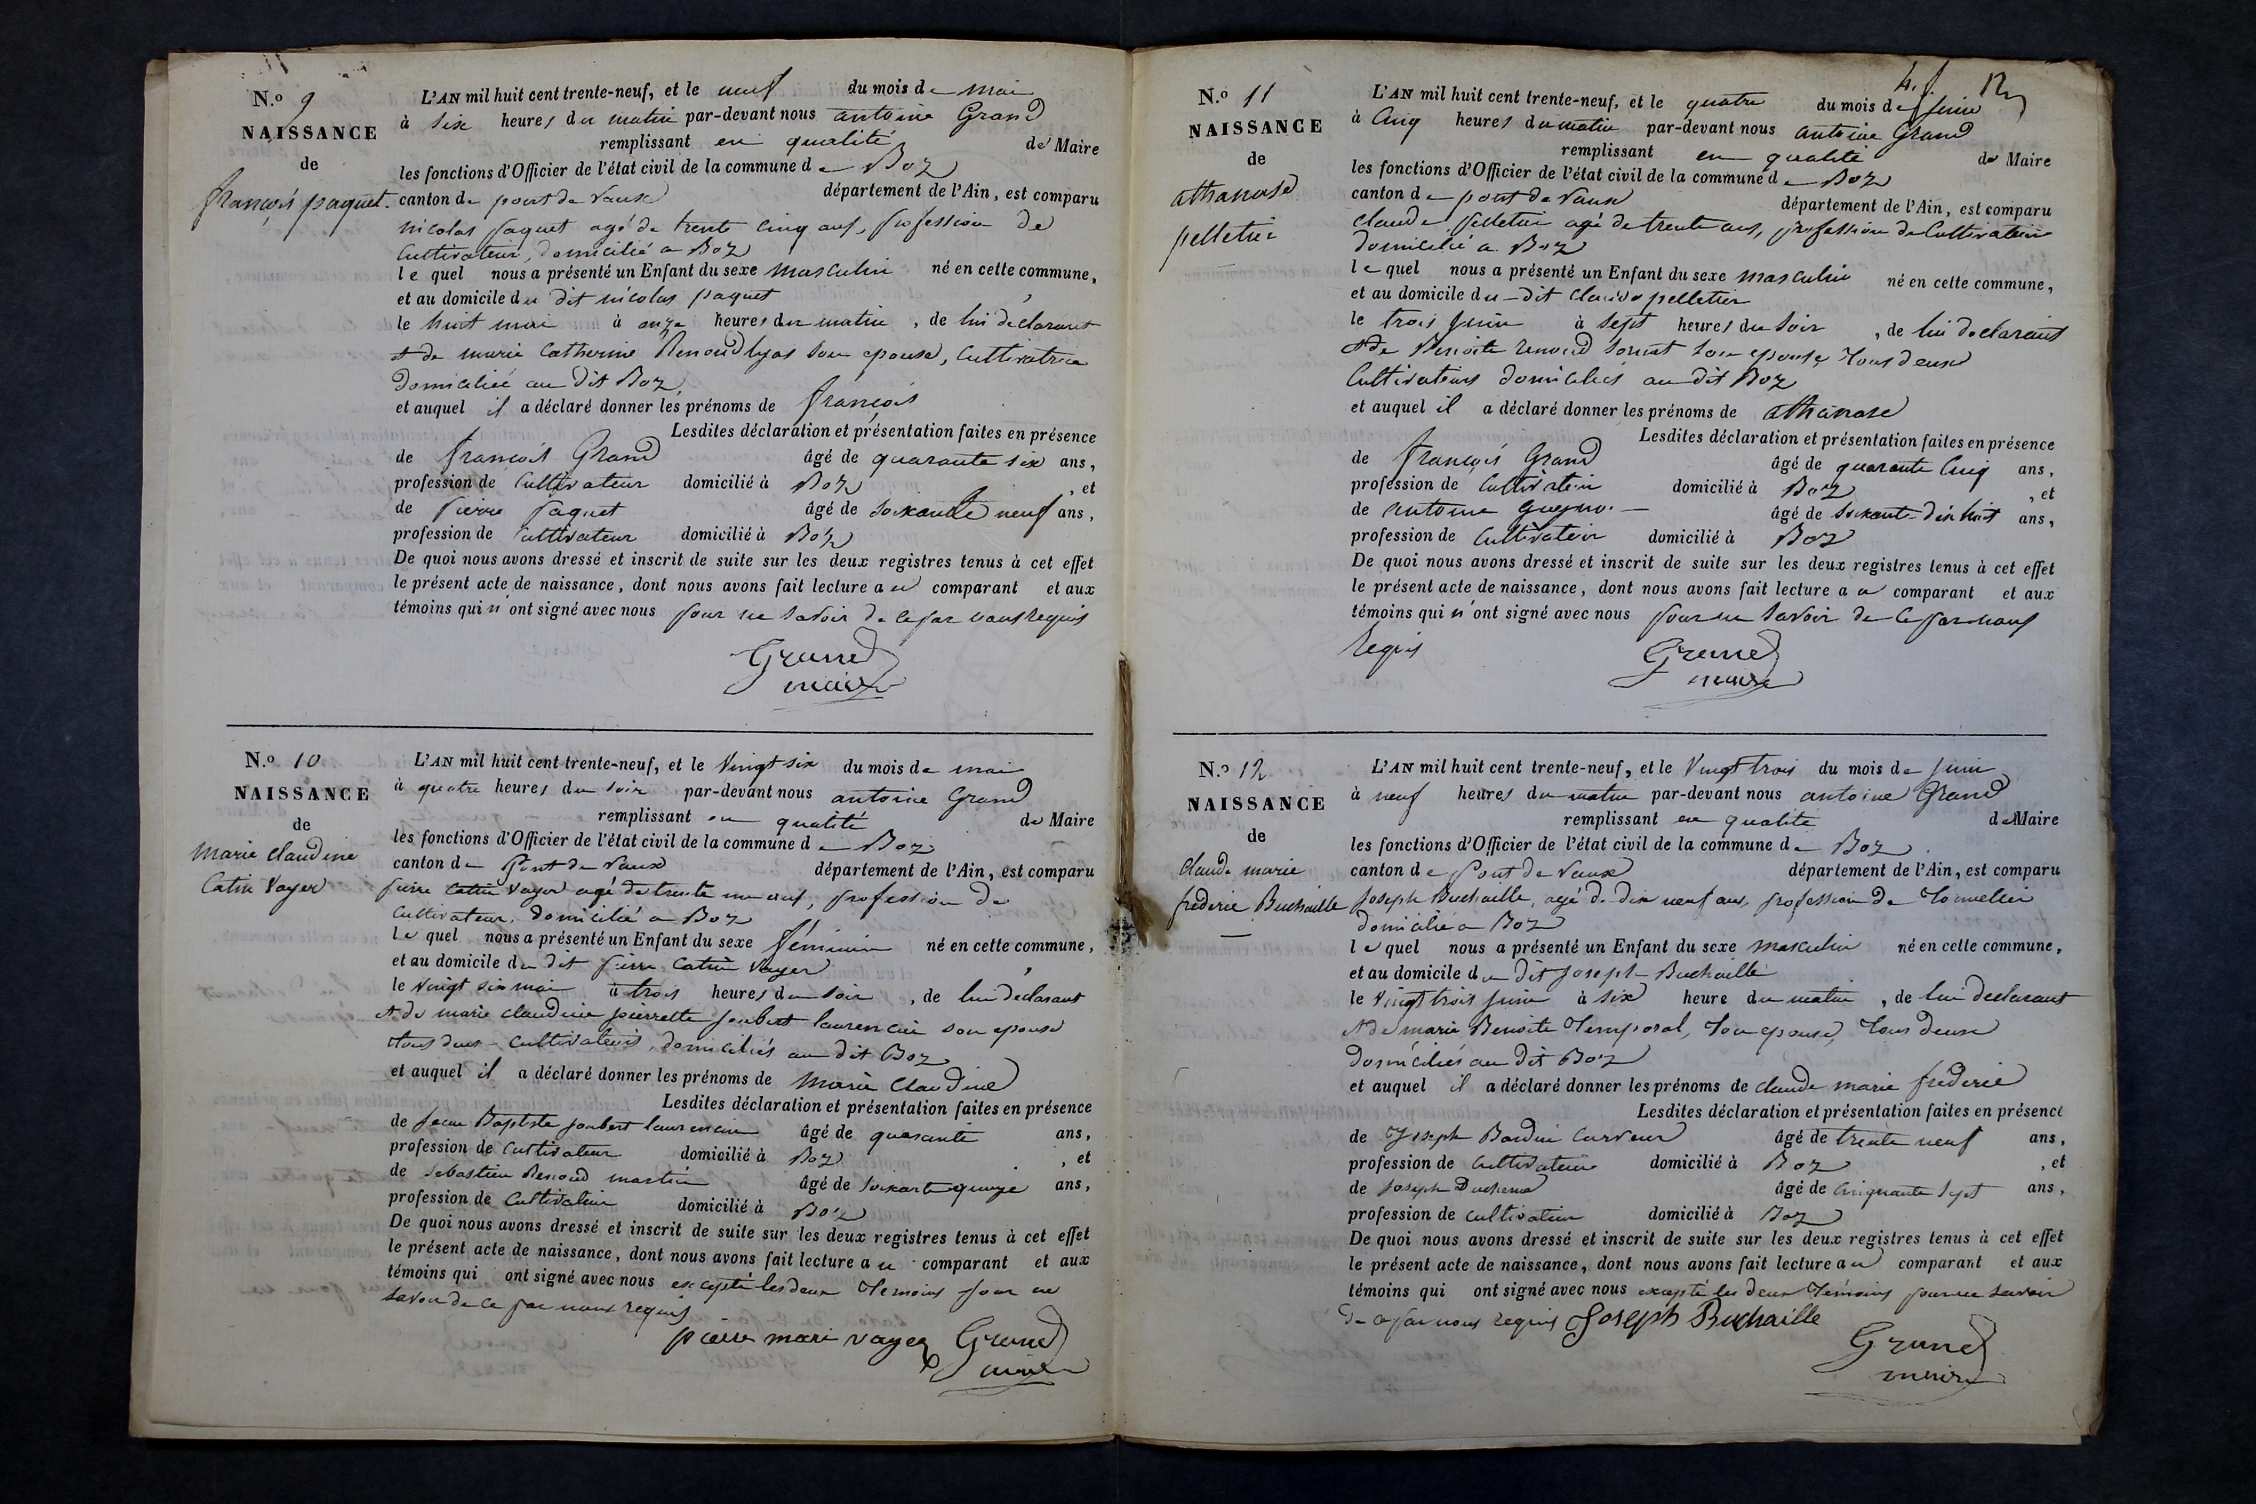 N.o 9
NAISSANCE
de
françois paquet.
L'AN mil huit cent trente-neuf, et le neuf du mois de mai
à six heures du matin par-devant nous antoine Grand
remplissant en qualité de Maire
les fonctions d'Officier de l'état civil de la commune de Boz
canton de pont de vaux département de l'Ain, est comparu
nicolas paquet agé de trente cinq ans, profession de
Cultivateur, domicilié a Boz
le quel nous a présenté un Enfant du sexe masculin né en cette commune,
et au domicile du dit nicolas paquet
le huit mai à onze heures du matin, de lui déclarant
et de marie Catherine Renoud lyas son epouse, Cultivatrice
Domiciliée au dit Boz
et auquel il a déclaré donner les prénoms de françois
Lesdites déclaration et présentation faites en présence
de françois Grand âgé de quarante six ans,
profession de Cultivateur domicilié à Boz, et
de Pierre Paquet âgé de soixante neuf ans,
profession de Cultivateur domicilié à Boz
De quoi nous avons dressé et inscrit de suite sur les deux registres tenus à cet effet
le présent acte de naissance, dont nous avons fait lecture au comparant et aux
témoins qui n'ont signé avec nous pour ne savoir de ce par nous requis
Grand
maire
N.o 10
NAISSANCE
de
Marie Claudine
Catin Vayer
L'AN mil huit cent trente-neuf, et le Vingt six du mois de mai
à quatre heures du soir par-devant nous antoine Grand
remplissant en qualité de Maire
les fonctions d'Officier de l'état civil de la commune de Boz
canton de Pont de Vaux département de l'Ain, est comparu
pierre Catin Vayer agé de trente un ans, profession de
Cultivateur, domicilié a Boz
le quel nous a présenté un Enfant du sexe féminin né en cette commune,
et au domicile du dit pierre Catin Vayer
le Vingt six mai à trois heures du soir, de lui déclarant
et de marie claudine pierrette joubert laurencin son epouse
tous deux cultivateurs, domiciliés au dit Boz
et auquel il a déclaré donner les prénoms de Marie Claudine
Lesdites déclaration et présentation faites en présence
de Jean Baptiste joubert laurencin âgé de quarante ans,
profession de Cultivateur domicilié à Boz, et
de sebastien Renoud martin âgé de soixante quinze ans,
profession de Cultivateur domicilié à Boz
De quoi nous avons dressé et inscrit de suite sur les deux registres tenus à cet effet
le présent acte de naissance, dont nous avons fait lecture au comparant et aux
témoins qui ont signé avec nous excepté les deux témoins pour ne
savoir de ce par nous requis
pierre mari vayer Grand
maire
4. f. 12
N.o 11
NAISSANCE
de
athanase
pelletier
L'AN mil huit cent trente-neuf, et le quatre du mois de Juin
à Cinq heures du matin par-devant nous antoine Grand
remplissant en qualité de Maire
les fonctions d'Officier de l'état civil de la commune de Boz
canton de pont de Vaux département de l'Ain, est comparu
claude pelletier agé de trente ans, profession de Cultivateur
domicilié a Boz
le quel nous a présenté un Enfant du sexe masculin né en cette commune,
et au domicile du dit claude pelletier
le trois juin à sept heures du soir, de lui declarant
et de Benoite renoud son epouse, tous deux
Cultivateurs domiciliés au dit Boz
et auquel il a déclaré donner les prénoms de athanase
Lesdites déclaration et présentation faites en présence
de françois Grand âgé de quarante Cinq ans,
profession de Cultivateur domicilié à Boz, et
de antoine âgé de soixante dix huit ans,
profession de Cultivateur domicilié à Boz
De quoi nous avons dressé et inscrit de suite sur les deux registres tenus à cet effet
le présent acte de naissance, dont nous avons fait lecture au comparant et aux
témoins qui n'ont signé avec nous pour ne savoir de ce par nous
requis
Grand
maire
N.o 12
NAISSANCE
de
Claude marie
frederic Buchaille
L'AN mil huit cent trente-neuf, et le Vingt trois du mois de juin
à neuf heures du matin par-devant nous antoine Grand
remplissant en qualité de Maire
les fonctions d'Officier de l'état civil de la commune de Boz
canton de Pont de Vaux département de l'Ain, est comparu
Joseph Buchaille, agé de dix neuf ans, profession de Tonnelier
domicilié a Boz
le quel nous a présenté un Enfant du sexe masculin né en cette commune,
et au domicile du dit joseph Buchaille
le Vingt trois juin à six heure du matin, de lui declarant
et de marie Benoite Temporal, son epouse, tous deux
domiciliés au dit Boz
et auquel il a déclaré donner les prénoms de claude marie frederic
Lesdites déclaration et présentation faites en présence
de Joseph Boudin âgé de trente neuf ans,
profession de Cultivateur domicilié à Boz, et
de Joseph âgé de cinquante sept ans,
profession de cultivateur domicilié à Boz
De quoi nous avons dressé et inscrit de suite sur les deux registres tenus à cet effet
le présent acte de naissance, dont nous avons fait lecture au comparant et aux
témoins qui ont signé avec nous excepté les deux témoins pour ne savoir
de ce par nous requis Joseph Buchaille
Grand
maire